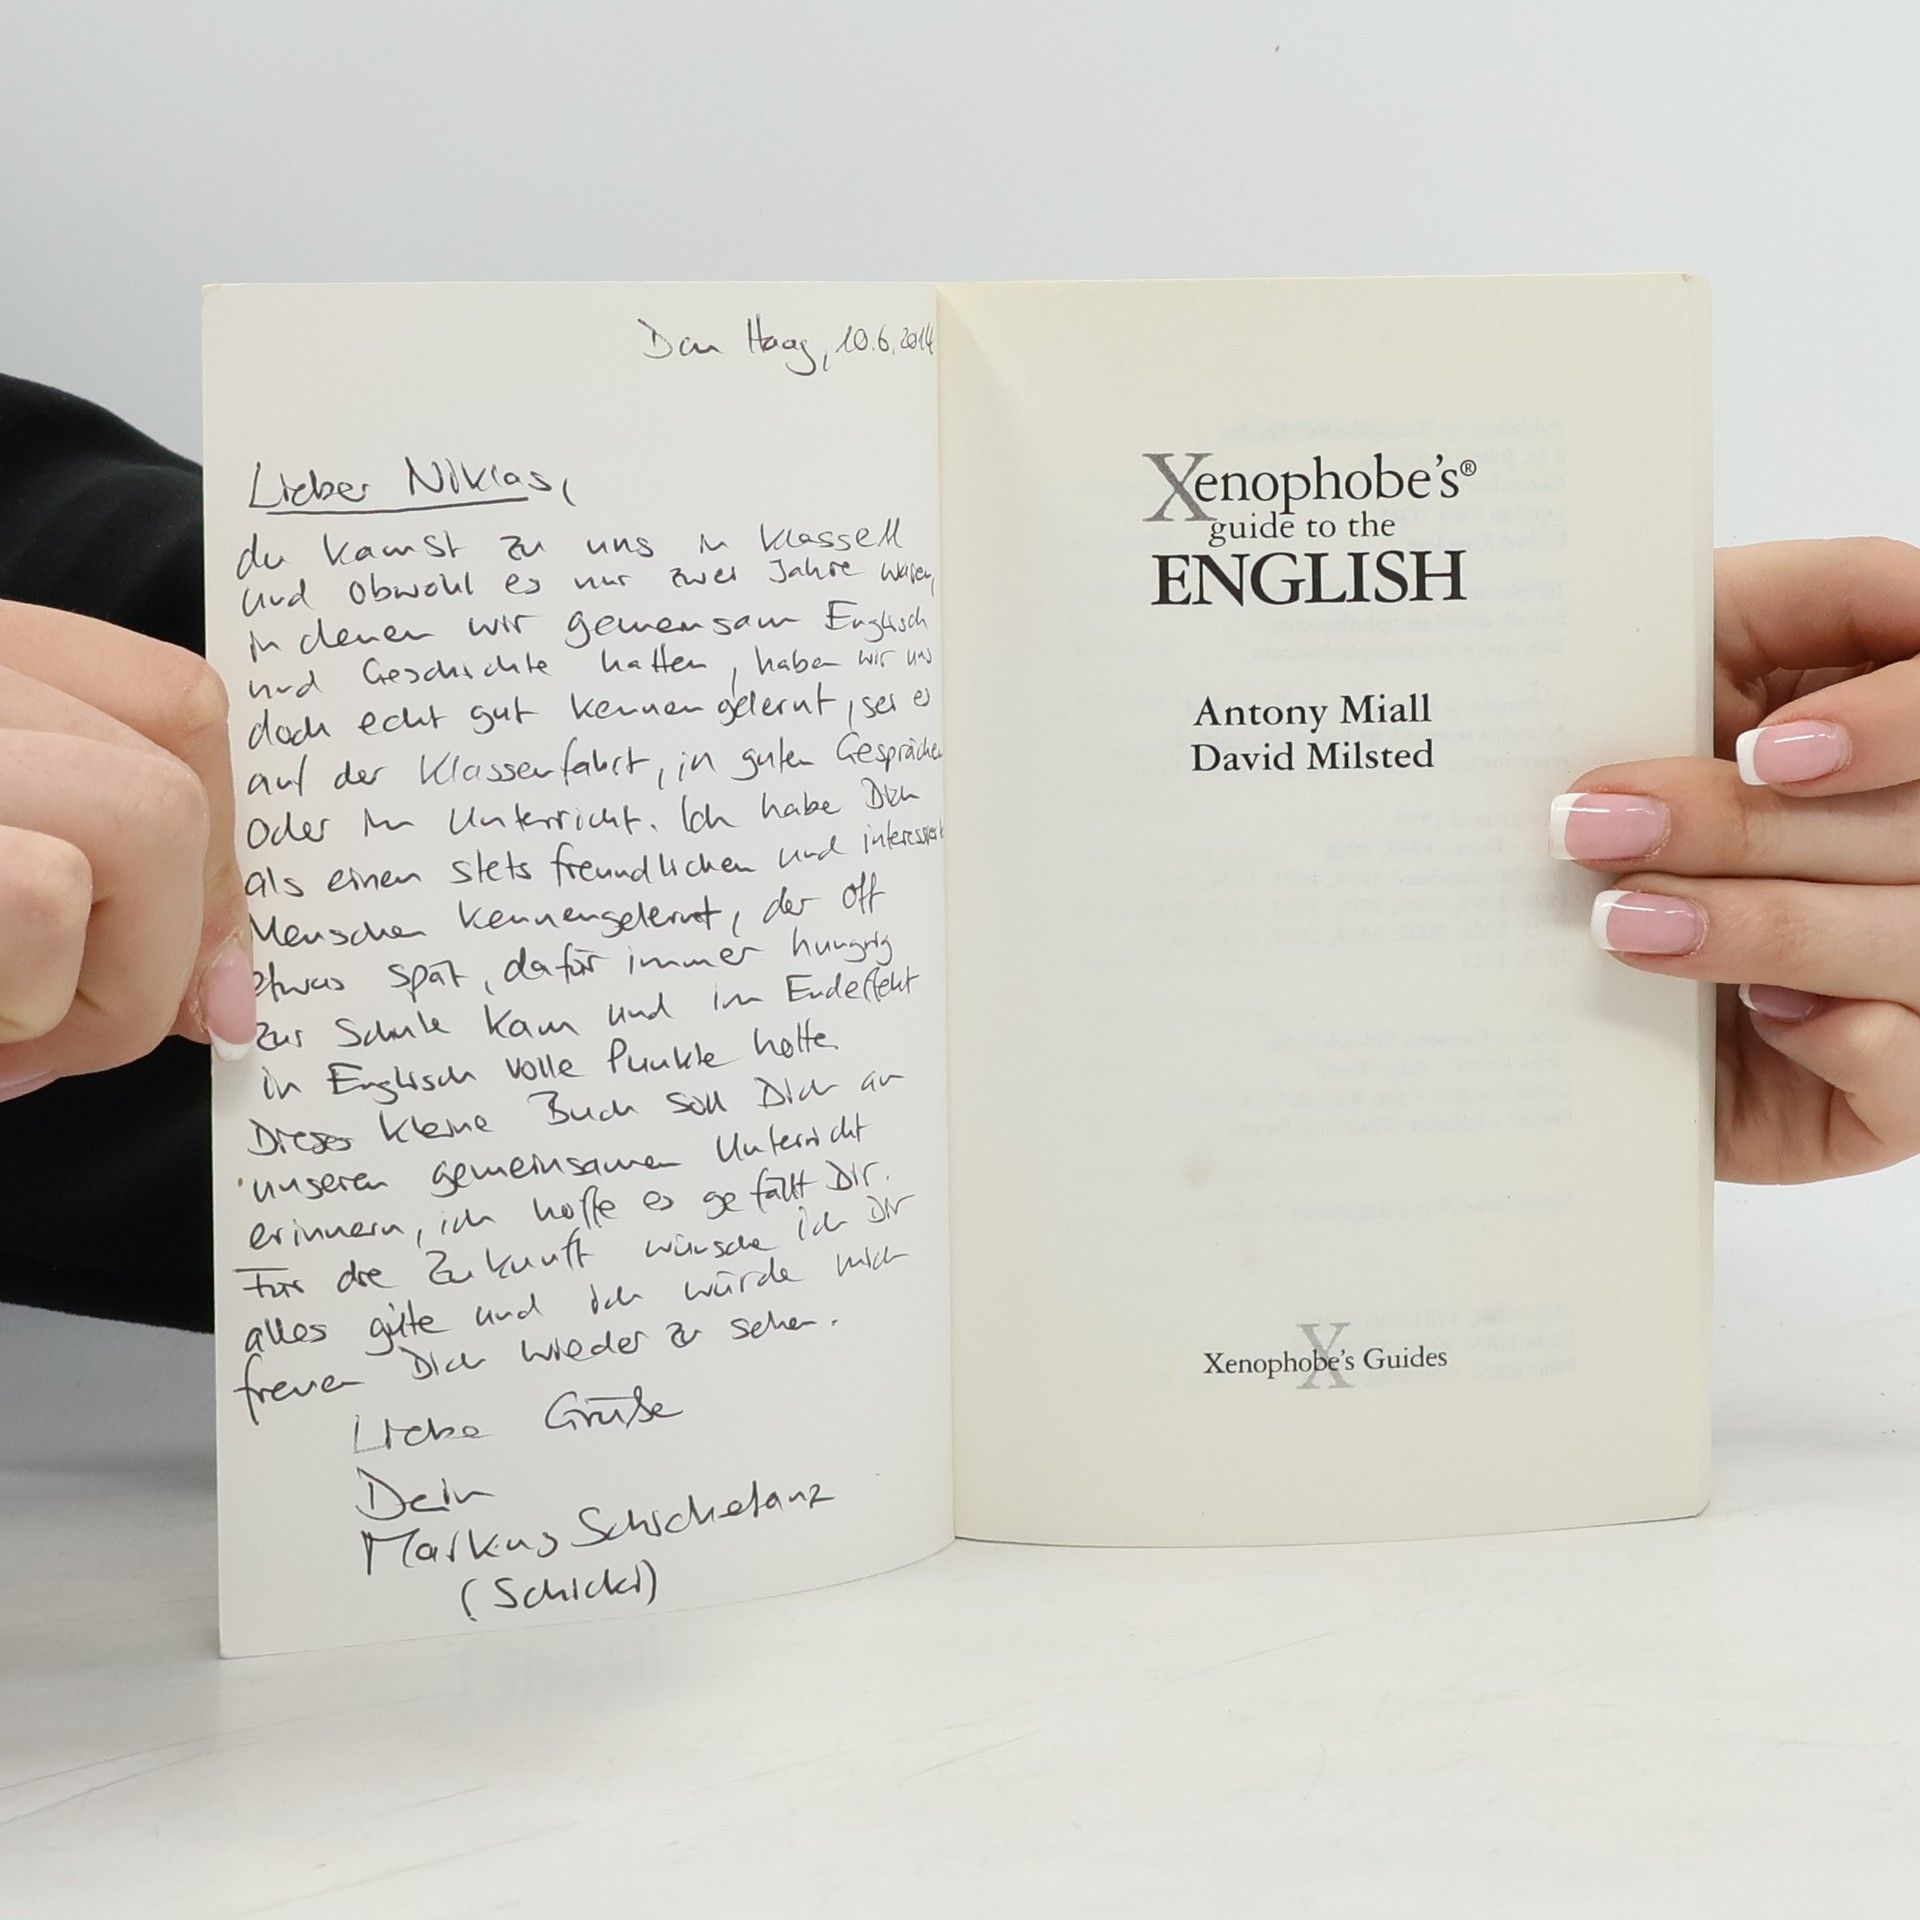 Den Haag, 10.6.2014
Lieber Niklas,
du kamst zu uns in Klasse 11
und obwohl es nur zwei Jahre waren,
in denen wir gemeinsam Englisch
und Geschichte hatten, haben wir uns
doch echt gut kennengelernt, sei es
auf der Klassenfahrt, in guten Gesprächen
oder im Unterricht. Ich habe Dich
als einen stets freundlichen und interessiert
Menschen kennengelernt, der oft
etwas spät, dafür immer hungrig
zur Schule kam und im Endeffekt
in Englisch volle Punkte holte.
Dieses kleine Buch soll Dich an
unseren gemeinsamen Unterricht
erinnern, ich hoffe es gefällt Dir.
Für die Zukunft wünsche ich Dir
alles gute und ich würde mich
freuen Dich wieder zu sehen.
Liebe Grüße
Dein
Markus Schicketanz
(Schicki)
Xenophobe's®
guide to the
ENGLISH
Antony Miall
David Milsted
Xenophobe's Guides